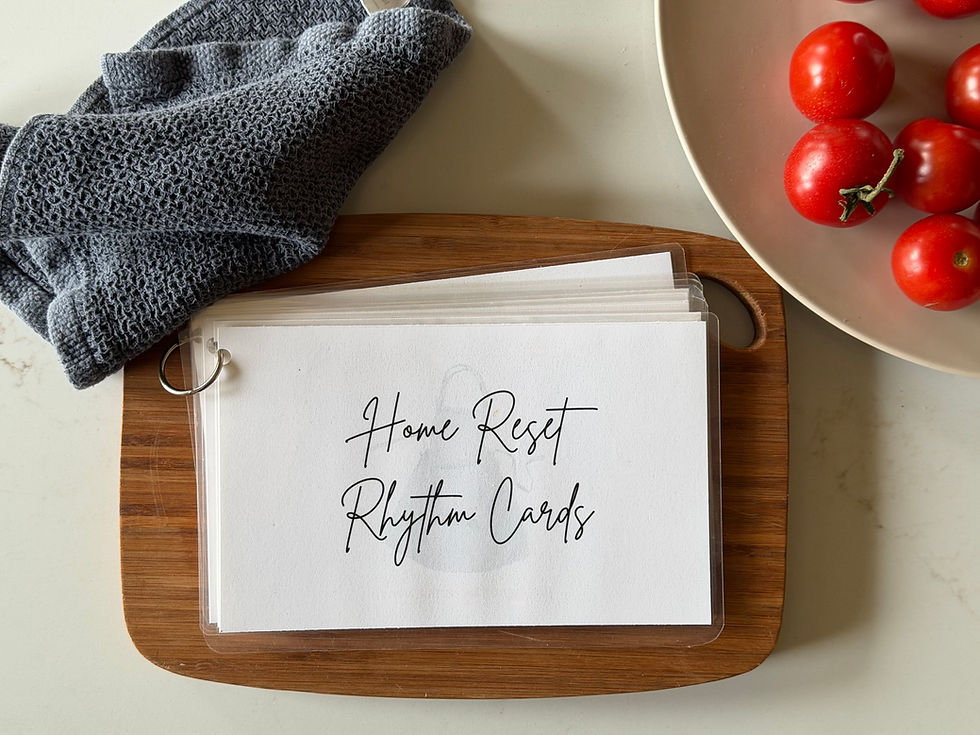 Home Reset
Rhythm Cards